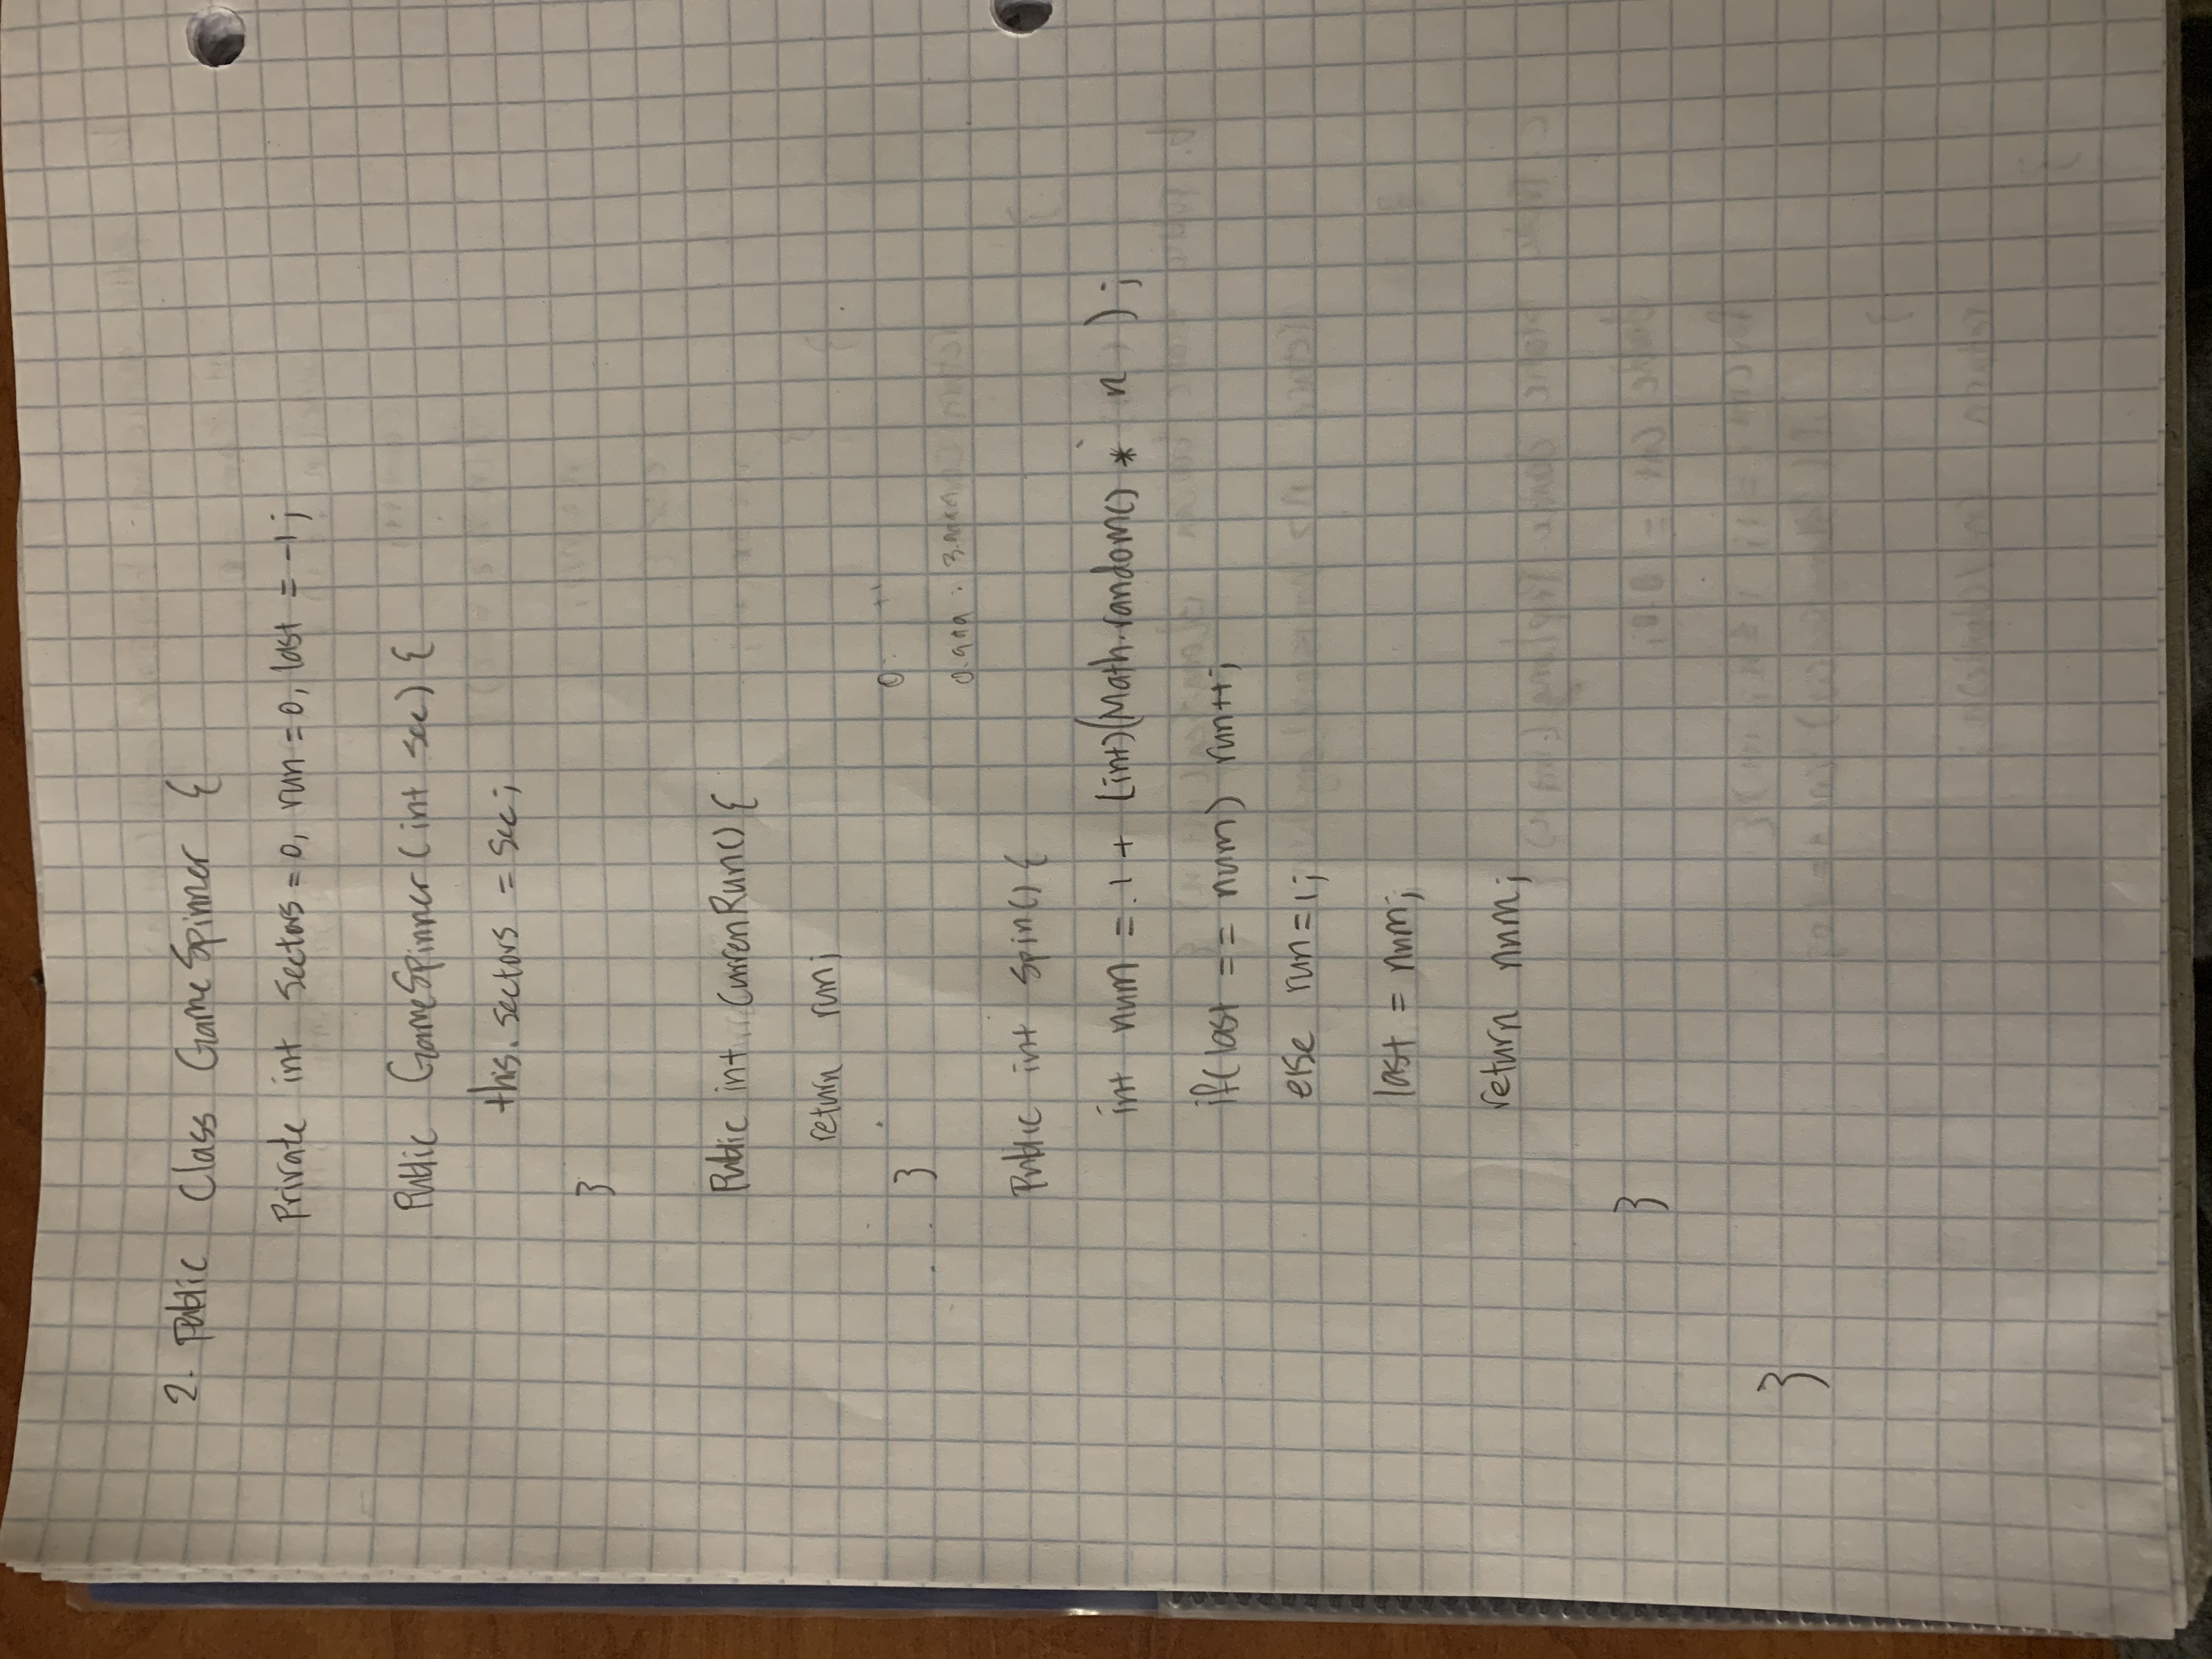 2. Public Class GameSpinner {
Private int sectors = 0, run = 0, last = -1;
Public GameSpinner (int sec) {
this.sectors = sec;
}
Public int CurrenRun() {
return run;
}
0:
0.999 : 3.999
Public int spin() {
int num = 1 + (int)(Math.random() * n );
if(last == num) run++;
else run=1;
last = num;
return num;
}
}